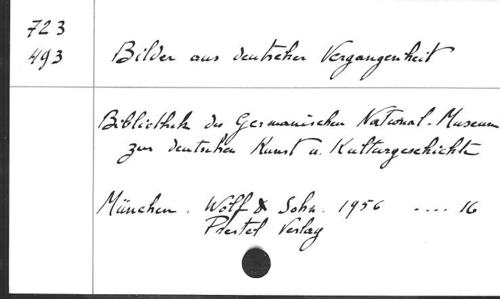 723
493
Bilder aus deutscher Vergangenheit
Bibliothek des Germanischen National-Museum
zur deutschen Kunst u. Kulturgeschichte
München. Wolf & Sohn. 1956 .... 16
Prestel Verlag